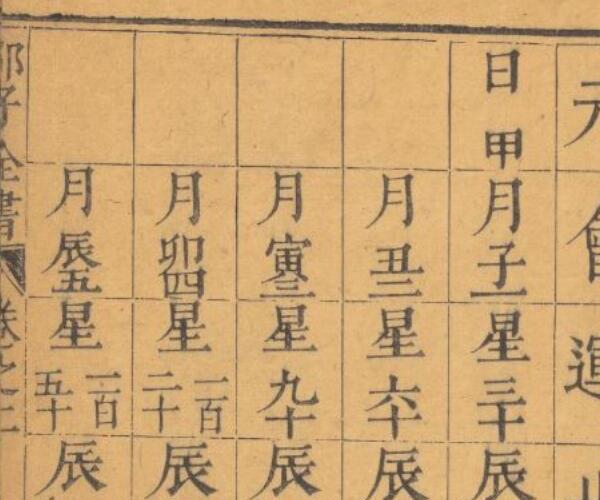 元會運
日甲月子一星三十辰
月丑二星六十辰
月寅三星九十辰
月卯四星一百二十辰
月辰五星一百五十辰
邵子全書 卷之